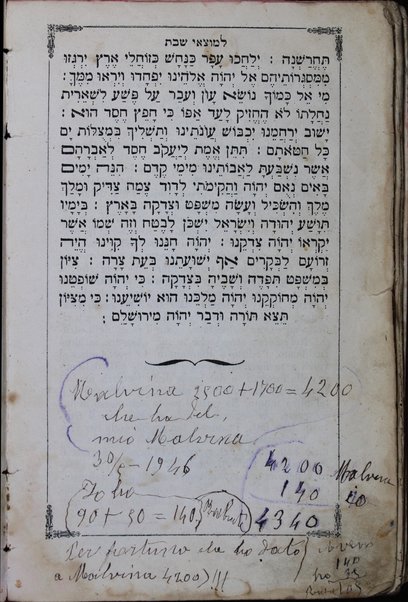 למוצאי שבת
תֶּחֱרַשְׁנָה : יְלַחֲכוּ עָפָר כַּנָּחָשׁ כְּזוֹחֲלֵי אֶרֶץ יִרְגְּזוּ
מִמִּסְגְּרוֹתֵיהֶם אֶל יְהוָֹה אֱלֹהֵינוּ יִפְחֲדוּ וְיִרְאוּ מִמֶּךָּ :
מִי אֵל כָּמוֹךָ נוֹשֵׂא עָוֹן וְעֹבֵר עַל פֶּשַׁע לִשְׁאֵרִית
נַחֲלָתוֹ לֹא הֶחֱזִיק לָעַד אַפּוֹ כִּי חָפֵץ חֶסֶד הוּא :
יָשׁוּב יְרַחֲמֵנוּ יִכְבּוֹשׁ עֲוֹנֹתֵינוּ וְתַשְׁלִיךְ בִּמְצֻלוֹת יָם
כָּל חַטֹּאתָם : תִּתֵּן אֱמֶת לְיַעֲקֹב חֶסֶד לְאַבְרָהָם
אֲשֶׁר נִשְׁבַּעְתָּ לַאֲבוֹתֵינוּ מִימֵי קֶדֶם : הִנֵּה יָמִים
בָּאִים נְאֻם יְהוָֹה וַהֲקִימֹתִי לְדָוִד צֶמַח צַדִּיק וּמָלַךְ
מֶלֶךְ וְהִשְׂכִּיל וְעָשָׂה מִשְׁפָּט וּצְדָקָה בָּאָרֶץ : בְּיָמָיו
תִּוָּשַׁע יְהוּדָה וְיִשְׂרָאֵל יִשְׁכֹּן לָבֶטַח וְזֶה שְׁמוֹ אֲשֶׁר
יִקְרְאוֹ יְהוָֹה צִדְקֵנוּ : יְהוָֹה חָנֵּנוּ לְךָ קִוִּינוּ הֱיֵה
זְרוֹעָם לַבְּקָרִים אַף יְשׁוּעָתֵנוּ בְּעֵת צָרָה : צִיּוֹן
בְּמִשְׁפָּט תִּפָּדֶה וְשָׁבֶיהָ בִּצְדָקָה : כִּי יְהוָֹה שׁוֹפְטֵנוּ
יְהוָֹה מְחוֹקְקֵנוּ יְהוָֹה מַלְכֵּנוּ הוּא יוֹשִׁיעֵנוּ : כִּי מִצִּיּוֹן
תֵּצֵא תוֹרָה וּדְבַר יְהוָֹה מִירוּשָׁלָםִ :
Malvina 2500 + 1700 = 4200
che ha del
mio Malvina
30/5 - 1946
4200 Malvina
140 io
Io ho
90 + 50 = 140
4340
Per fortuno che ho dato
a Malvina 4200) !!!
140